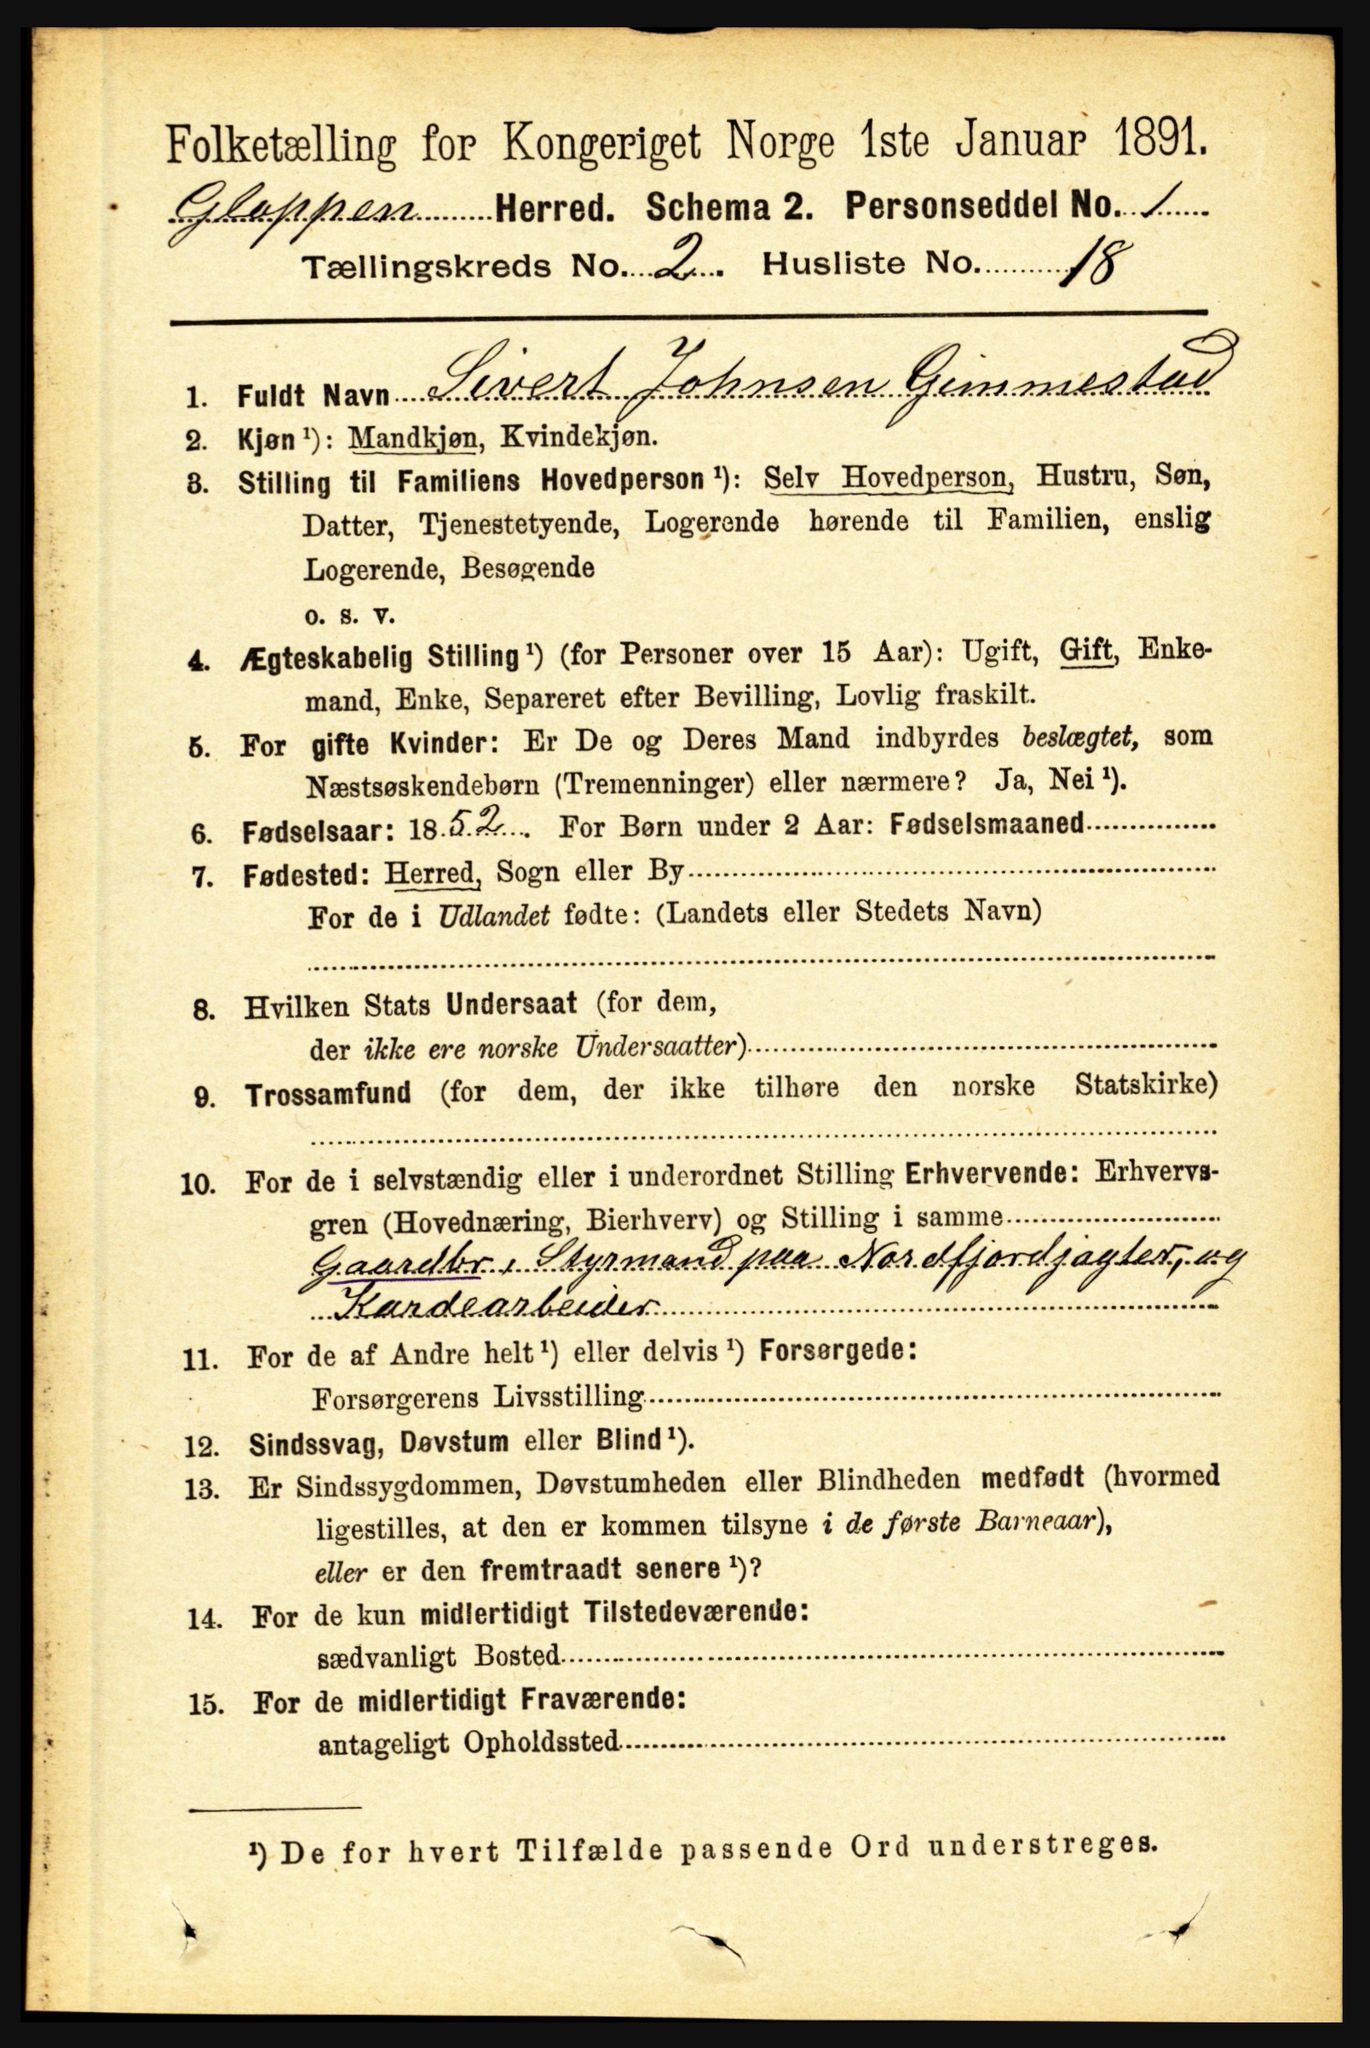 Folketælling for Kongeriget Norge 1ste Januar 1891.
Gloppen Herred. Schema 2. Personseddel No. 1
Tællingskreds No. 2. Husliste No. 18
1. Fuldt Navn Sivert Johnsen Gimmestad
2. Kjøn ¹): Mandkjøn, Kvindekjøn.
3. Stilling til Familiens Hovedperson ¹): Selv Hovedperson, Hustru, Søn,
Datter, Tjenestetyende, Logerende hørende til Familien, enslig
Logerende, Besøgende
o. s. v.
4. Ægteskabelig Stilling ¹) (for Personer over 15 Aar): Ugift, Gift, Enke-
mand, Enke, Separeret efter Bevilling, Lovlig fraskilt.
5. For gifte Kvinder: Er De og Deres Mand indbyrdes beslægtet, som
Næstsøskendebørn (Tremenninger) eller nærmere? Ja, Nei ¹).
6. Fødselsaar: 1852. For Børn under 2 Aar: Fødselsmaaned
7. Fødested: Herred, Sogn eller By
For de i Udlandet fødte: (Landets eller Stedets Navn)
8. Hvilken Stats Undersaat (for dem,
der ikke ere norske Undersaatter)
9. Trossamfund (for dem, der ikke tilhøre den norske Statskirke)
10. For de i selvstændig eller i underordnet Stilling Erhvervende: Erhvervs-
gren (Hovednæring, Bierhverv) og Stilling i samme
Gaardbr., Styrmand paa Nordfjordjagter, og
Kardearbeider
11. For de af Andre helt ¹) eller delvis ¹) Forsørgede:
Forsørgerens Livsstilling
12. Sindssvag, Døvstum eller Blind ¹).
13. Er Sindssygdommen, Døvstumheden eller Blindheden medfødt (hvormed
ligestilles, at den er kommen tilsyne i de første Barneaar),
eller er den fremtraadt senere ¹)?
14. For de kun midlertidigt Tilstedeværende:
sædvanligt Bosted
15. For de midlertidigt Fraværende:
antageligt Opholdssted
¹) De for hvert Tilfælde passende Ord understreges.